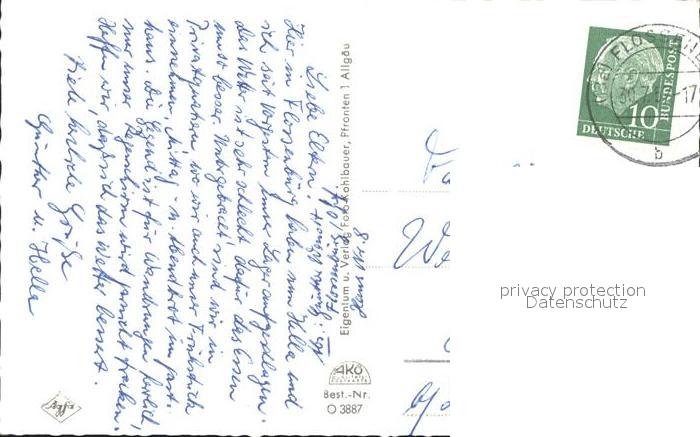 Liebe Eltern.
Hier in Flossenbürg haben nun Hella und
ich seit vorgestern unser Lager aufgeschlagen.
Das Wetter ist sehr schlecht dafür das Essen
umso besser. Untergebracht sind wir in
Privatquartieren wo wir auch unser Frühstück
einnehmen, Mittag- u. Abendbrot im Gast-
haus. Die Gegend ist für Wanderungen herrlich,
nur unser Regenschirm wird garnicht trocken.
Hoffen wir, daß sich das Wetter bessert.
Viele herzliche Grüße
Günther u. Hella
Flossenbürg
Haus Nr. 8
Eigentum u. Verlag Foto Kohlbauer, Pfronten 1 Allgäu
AKO
Best.-Nr.
O 3887
Agfa
FLOSSENB
b
10
DEUTSCHE
BUNDESPOST
We
privacy protection
Datenschutz